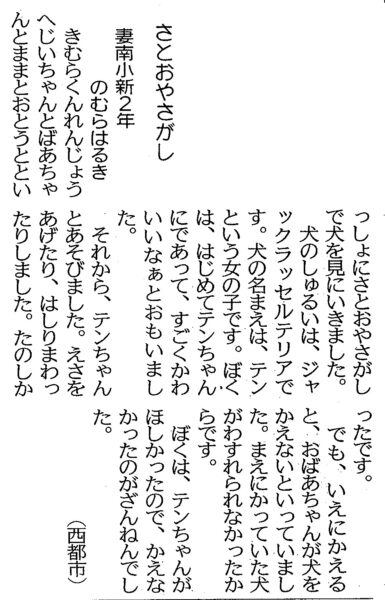 さとおやさがし
妻南小新２年
のむらはるき
きむらくんれんじょう
へじいちゃんとばあちゃ
んとままとおとうとといっ
っしょにさとおやさがし
で犬を見にいきました。
犬のしゅるいは、ジャ
ックラッセルテリアで
す。犬の名まえは、テン
という女の子です。ぼく
は、はじめてテンちゃん
にであって、すごくかわ
いいなぁとおもいまし
た。
それから、テンちゃん
とあそびました。えさを
あげたり、はしりまわっ
たりしました。たのしか
ったです。
でも、いえにかえる
と、おばあちゃんが犬を
かえないといっていまし
た。まえにかっていた犬
がわすれられなかったか
らです。
ぼくは、テンちゃんが
ほしかったので、かえな
かったのがざんねんでし
た。
（西都市）